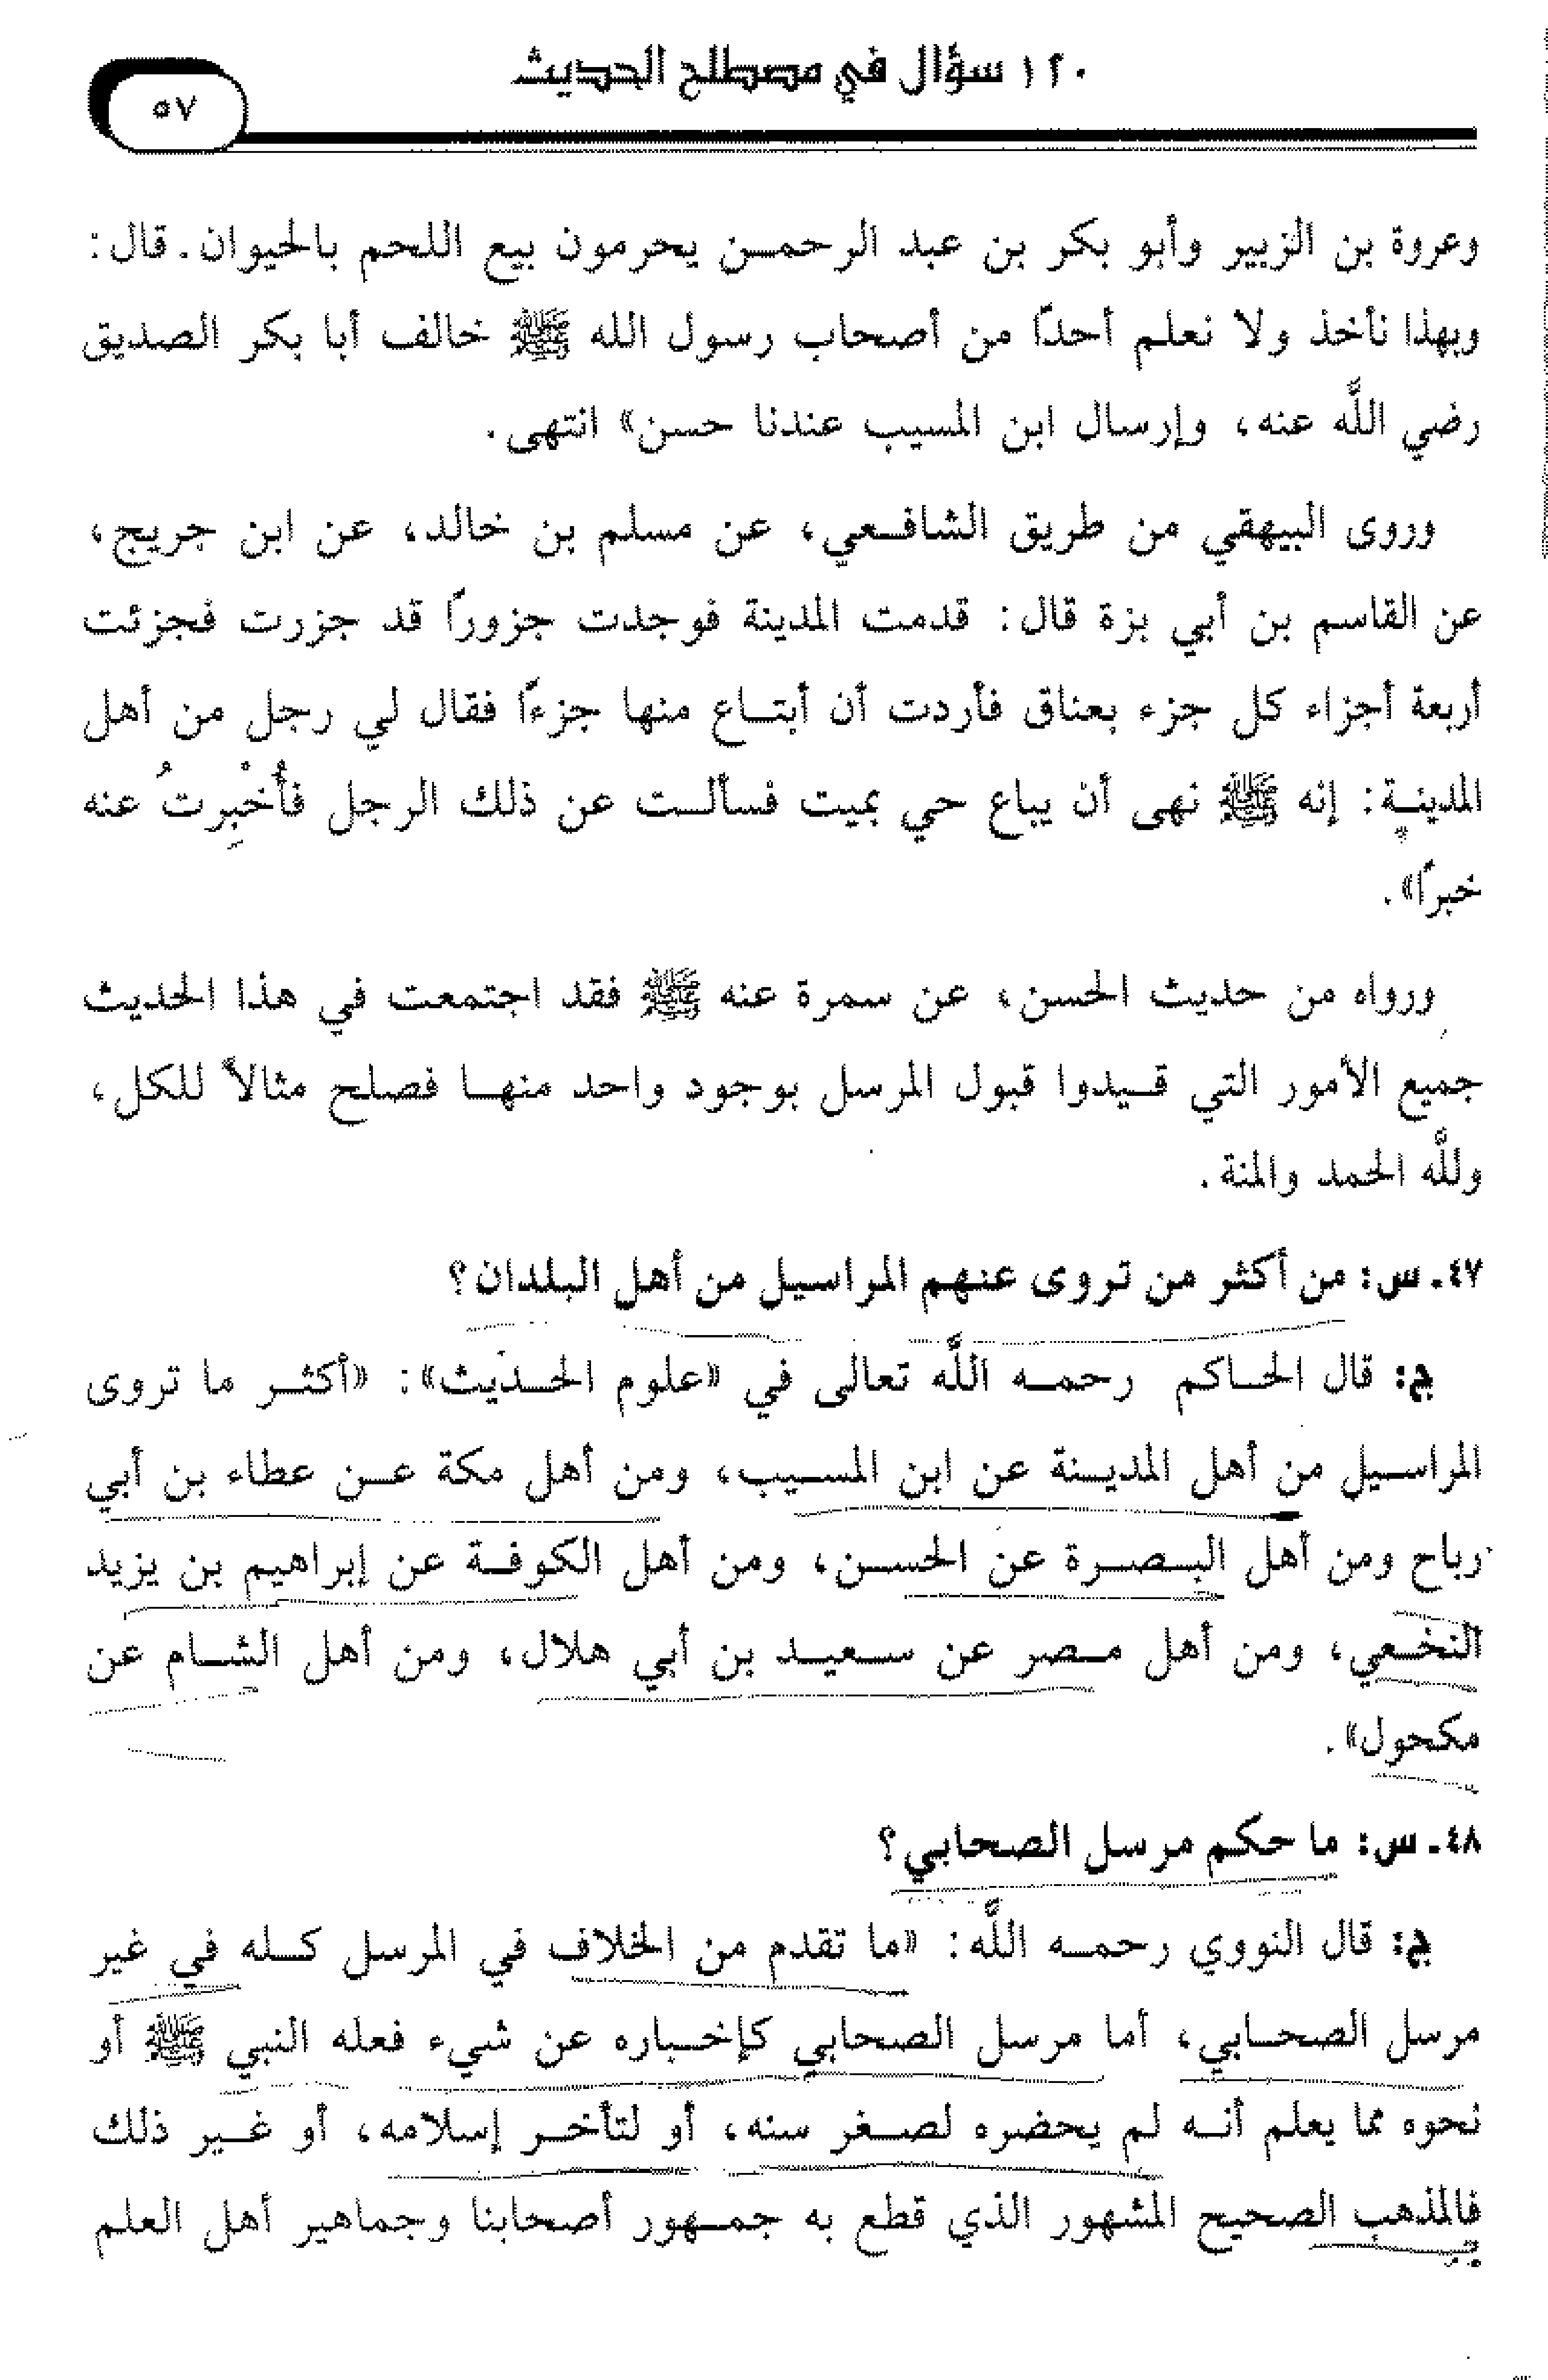 ١٢٠ سؤال في مصطلح الحديث
٥٧
وعروة بن الزبير وأبو بكر بن عبد الرحمـن يحرمون بيع اللحم بالحيوان. قال:
وبهذا نأخذ ولا نعلم أحدًا من أصحاب رسول الله ﷺ خالف أبا بكر الصديق
رضي اللَّه عنه، وإرسال ابن المسيب عندنا حسن» انتهى.
وروى البيهقي من طريق الشافـعي، عن مسلم بن خالد، عن ابن جريج،
عن القاسم بن أبي بزة قال: قدمت المدينة فوجدت جزورًا قد جزرت فجزئت
أربعة أجزاء كل جزء بعناق فأردت أن أبتـاع منها جزءًا فقال لي رجل من أهل
المدينـةِ: إنه ﷺ نهى أن يباع حي بميت فسألـت عن ذلك الرجل فأُخْبِرتُ عنه
خبرًا».
ورواه من حديث الحسن، عن سمرة عنه ﷺ فقد اجتمعت في هذا الحديث
جميع الأمور التي قـيدوا قبول المرسل بوجود واحد منهـا فصلح مثالاً للكل،
وللَّه الحمد والمنة.
٤٧ـ س: من أكثر من تروى عنهم المراسيل من أهل البلدان؟
ج: قال الحـاكم رحمـه اللَّه تعالى في «علوم الحـديث»: «أكثـر ما تروى
المراسـيل من أهل المديـنة عن ابن المسـيب، ومن أهل مكة عـن عطاء بن أبي
رباح ومن أهل البـصـرة عن الحسـن، ومن أهل الكوفـة عن إبراهيم بن يزيد
النخـعي، ومن أهل مـصر عن سـعيـد بن أبي هلال، ومن أهل الشـام عن
مكحول».
٤٨ـ س: ما حكم مرسل الصحابي؟
ج: قال النووي رحمـه اللَّه: «ما تقدم من الخلاف في المرسل كـله في غير
مرسل الصحـابي، أما مرسل الصحابي كإخـباره عن شيء فعله النبي ﷺ أو
نحوه مما يعلم أنـه لم يحضره لصـغر سنه، أو لتأخـر إسلامه، أو غـير ذلك
فالمذهب الصحيح المشهور الذي قطع به جمـهور أصحابنا وجماهير أهل العلم